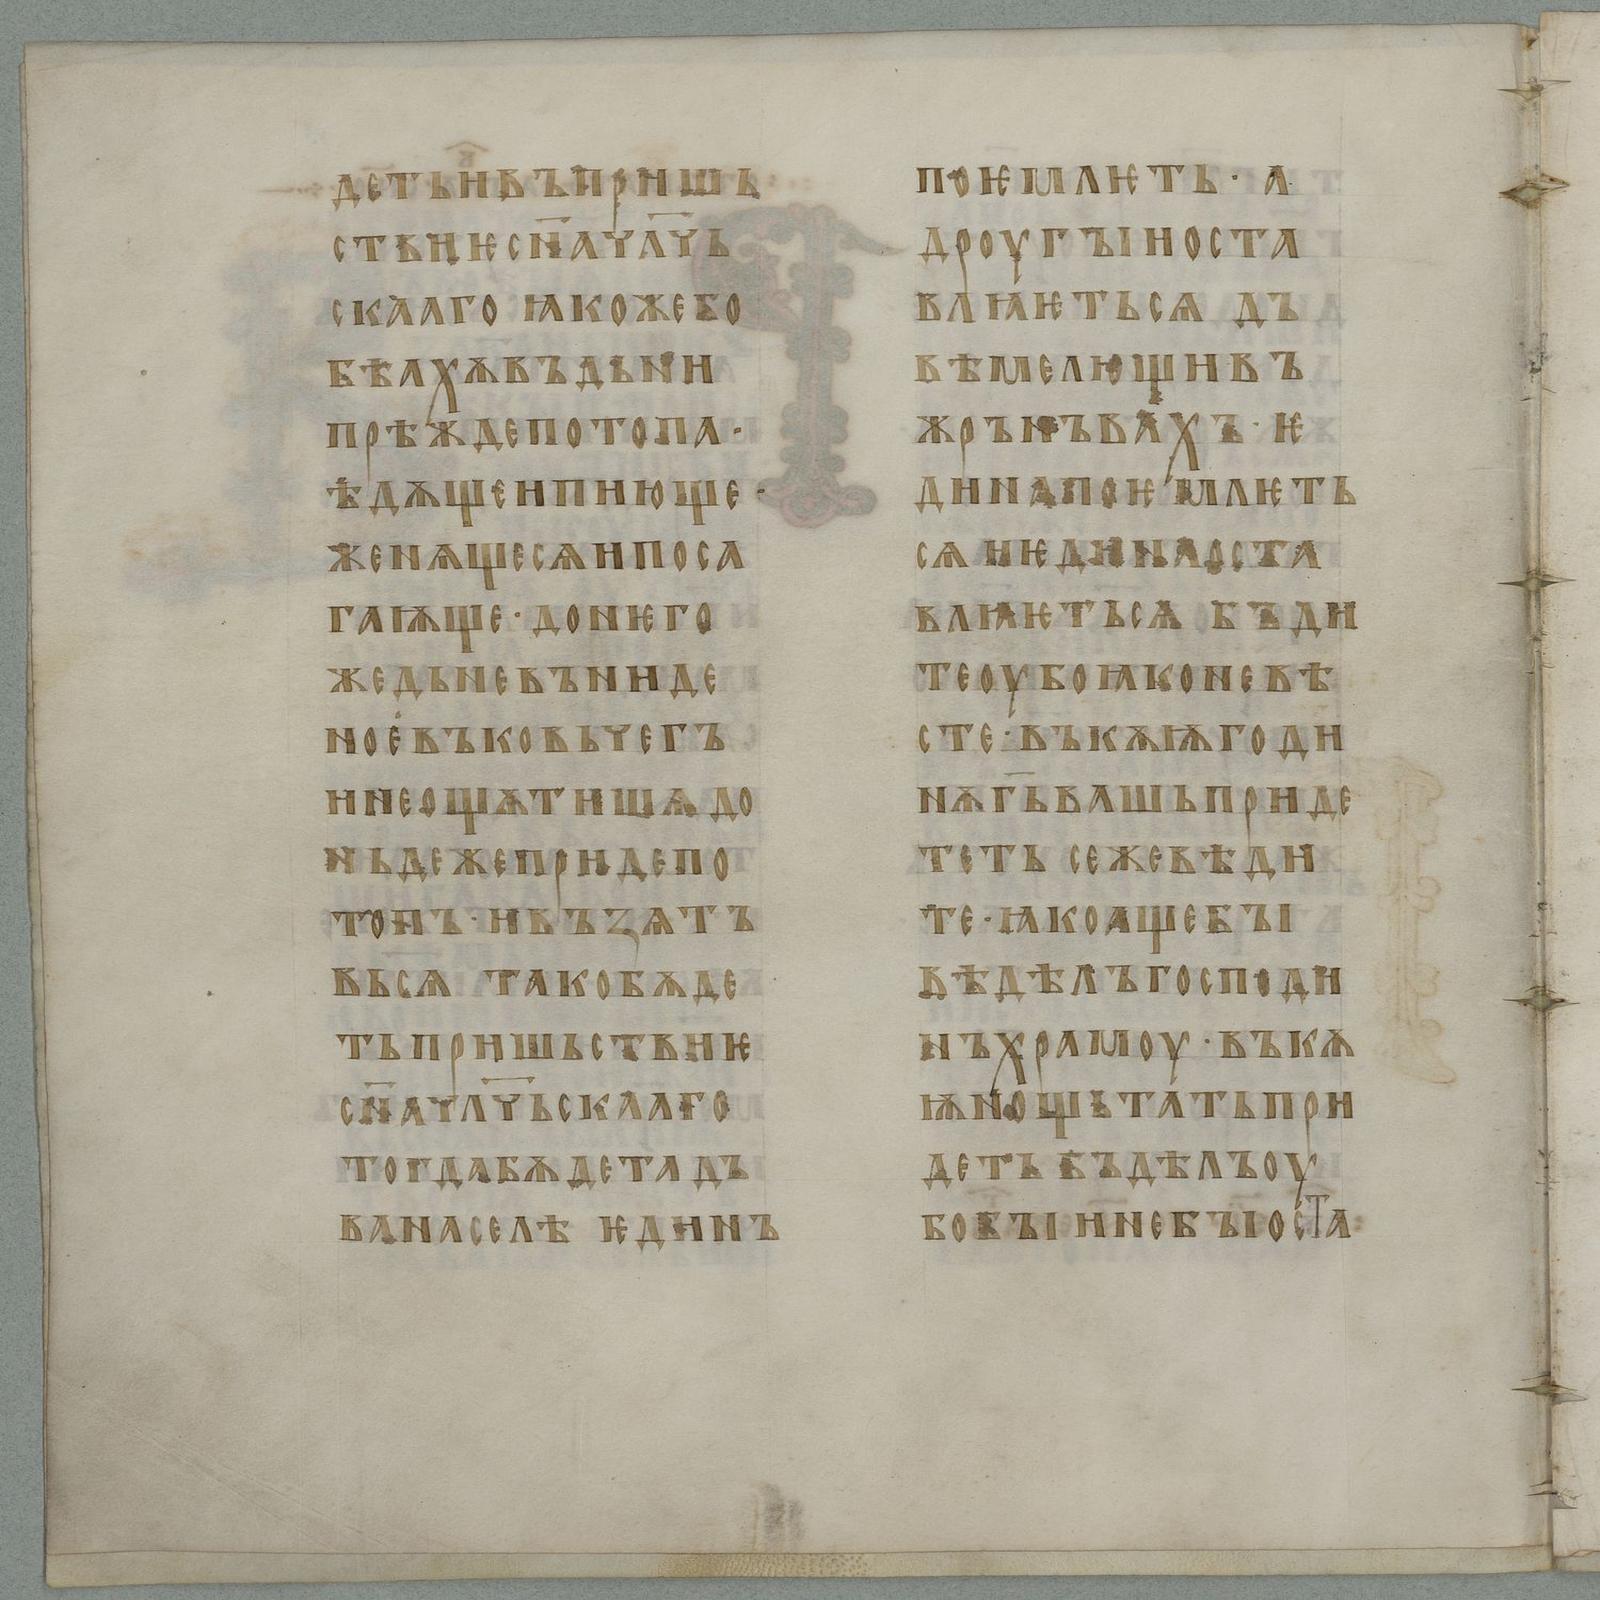 детьнвъпришь
ствиѥсн҃аүл҃үь
скааго ꙗкожебо
бѣахѫвъдьни
прѣждепотопа·
ѣдѫщеипиющe·
женѧщесѧипоса
гаѭще·донѥго
жедьневъниде
ноевъковьүегъ
инеощѫтишѧ до
ньдежепридепо
топъ·ивъꙁѧтъ
вьсѧ такобѫде
тьпришьствиѥ
сн҃аүл҃үьскааго
тогдабѫдетадъ
ванаселѣ ѥдинъ
поѥмлѥть· а
дроугъіноста
влꙗѥтьсѧ дъ
вѣмелющивъ
жрънъвахъ·ѥ
динапоѥмлѥть
сѧ иѥдинаоста
влꙗѥтьсѧ бъди
теоубоꙗконевѣ
сте·въкѫѭгоди
нѫг҃ьвашьприде
теть сежевѣди
те·ꙗкоащебъі
вѣдѣлъгосподи
нъхрамоу·въкѫ
ѭнощьтатьпри
деть бъдѣлъоу
бобъіинебъіоста